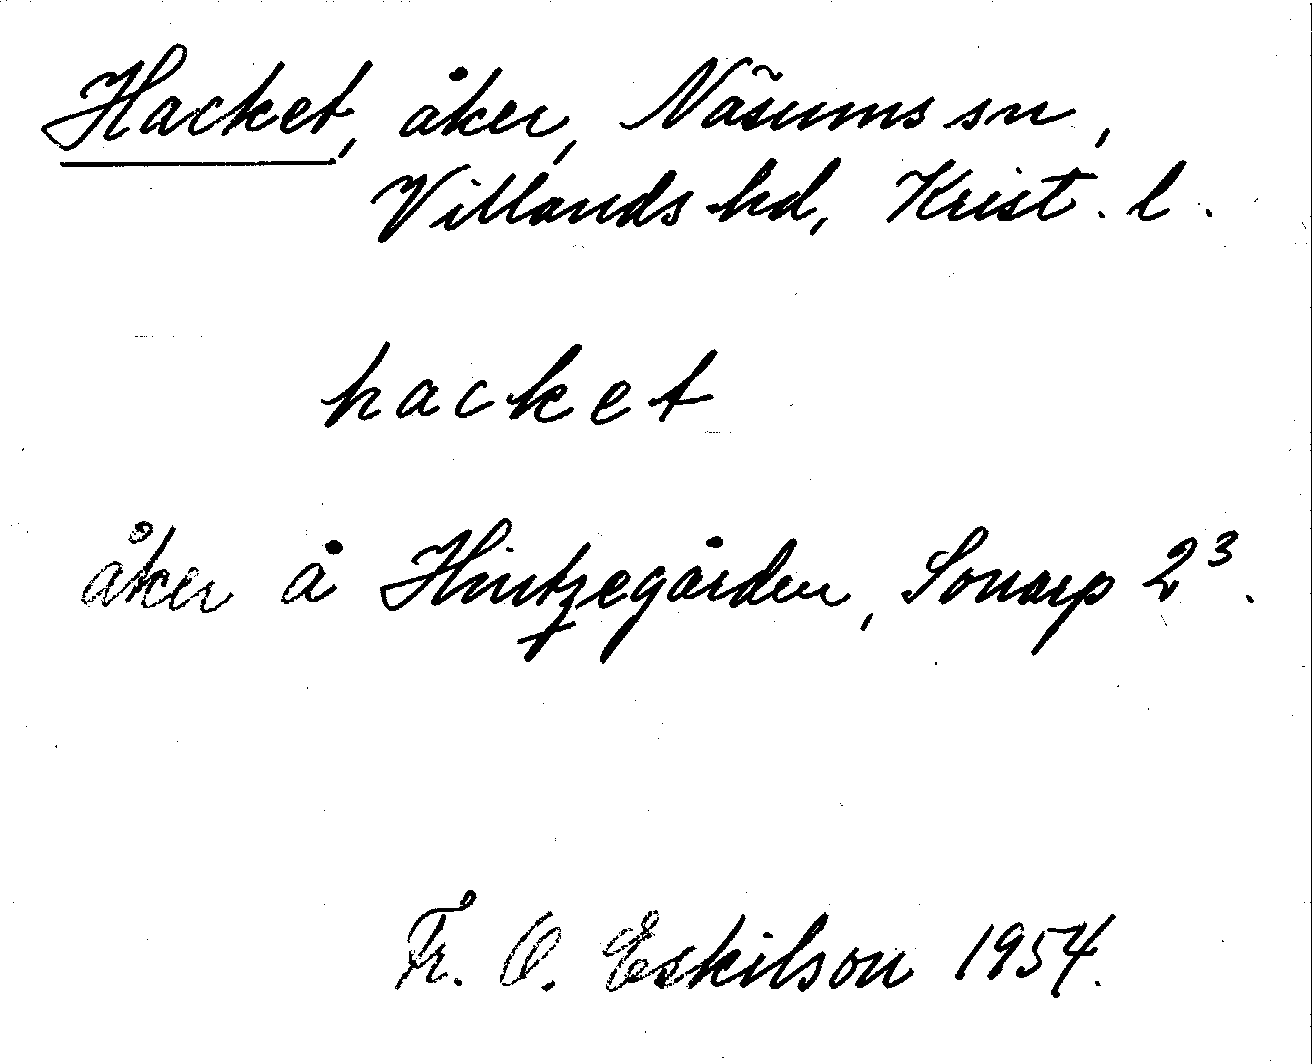 Hacket, åker, Näsums sn,
Villands hd, Krist. l.
hacket
åker å Hintzegården, Sonarp 2³.
Fr. O. Eskilson 1954.